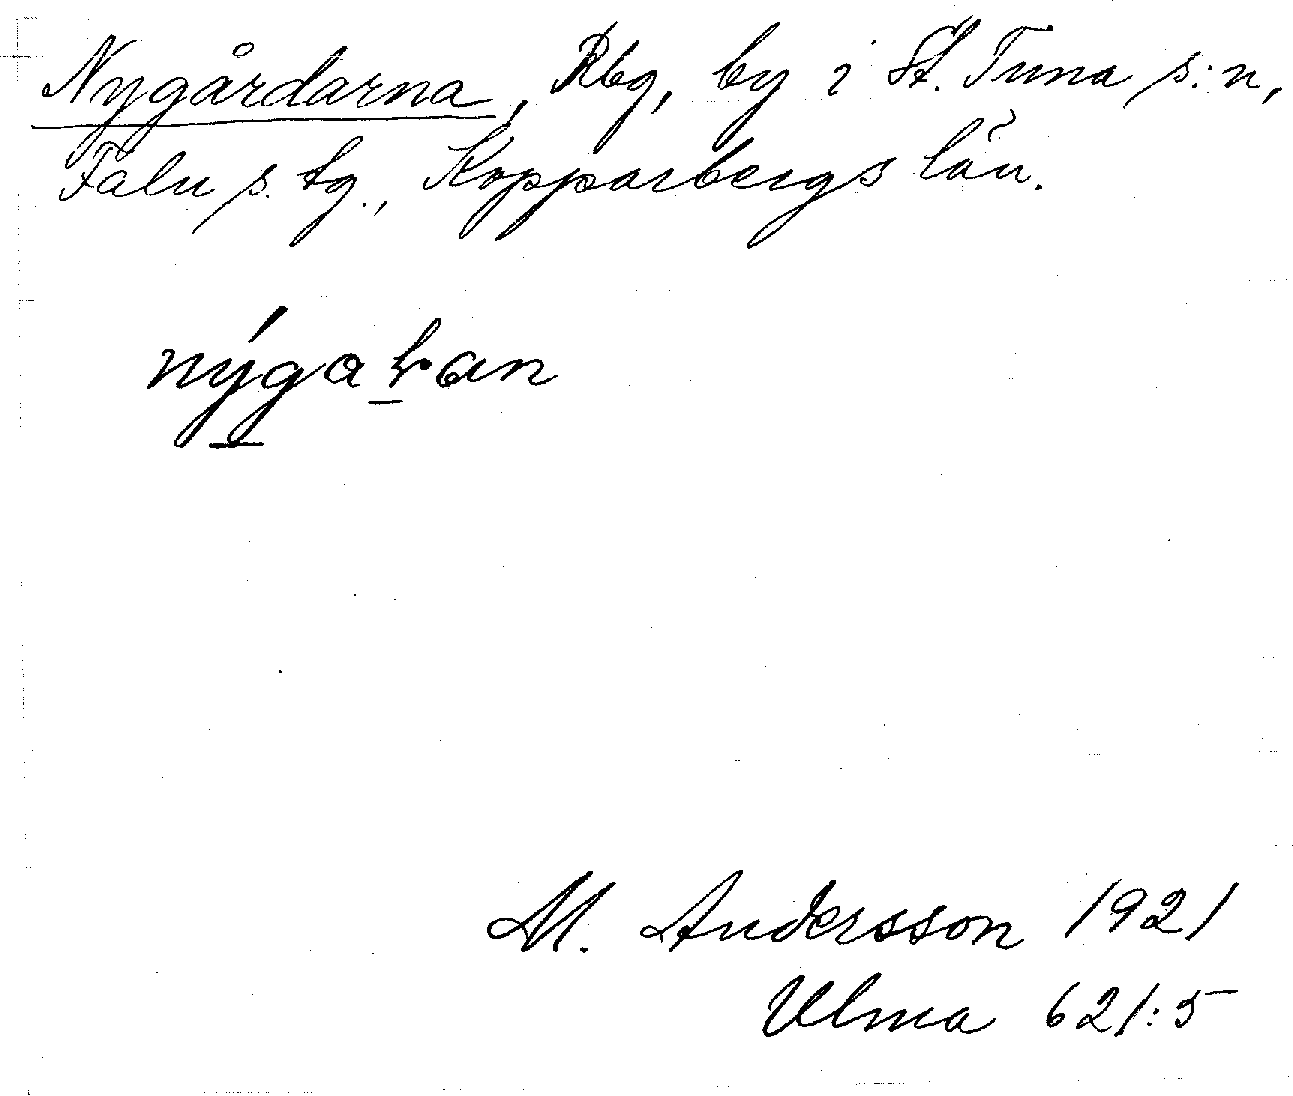 Nygårdarna, Rbg, by i St. Tuna s:n,
Falu s. tg., Kopparbergs län.
M. Andersson 1921
Ulma 621:5